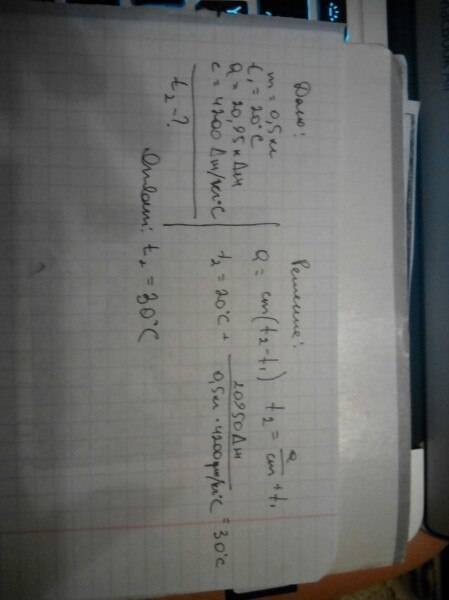 Дано:
m = 0,5 кг
t₁ = 20°C
Q = 20,95 кДж
c = 4200 Дж/кг°C
t₂ - ?
Решение:
Q = cm(t₂ - t₁) t₂ = Q/cm + t₁
t₂ = 20°C + 20950 Дж / 0,5 кг · 4200 Дж/кг°C = 30°C
Ответ: t₂ = 30°C